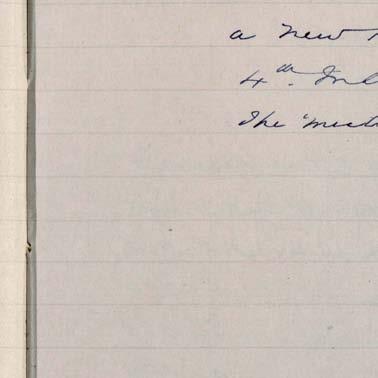 a new
4th. Jul
The meet